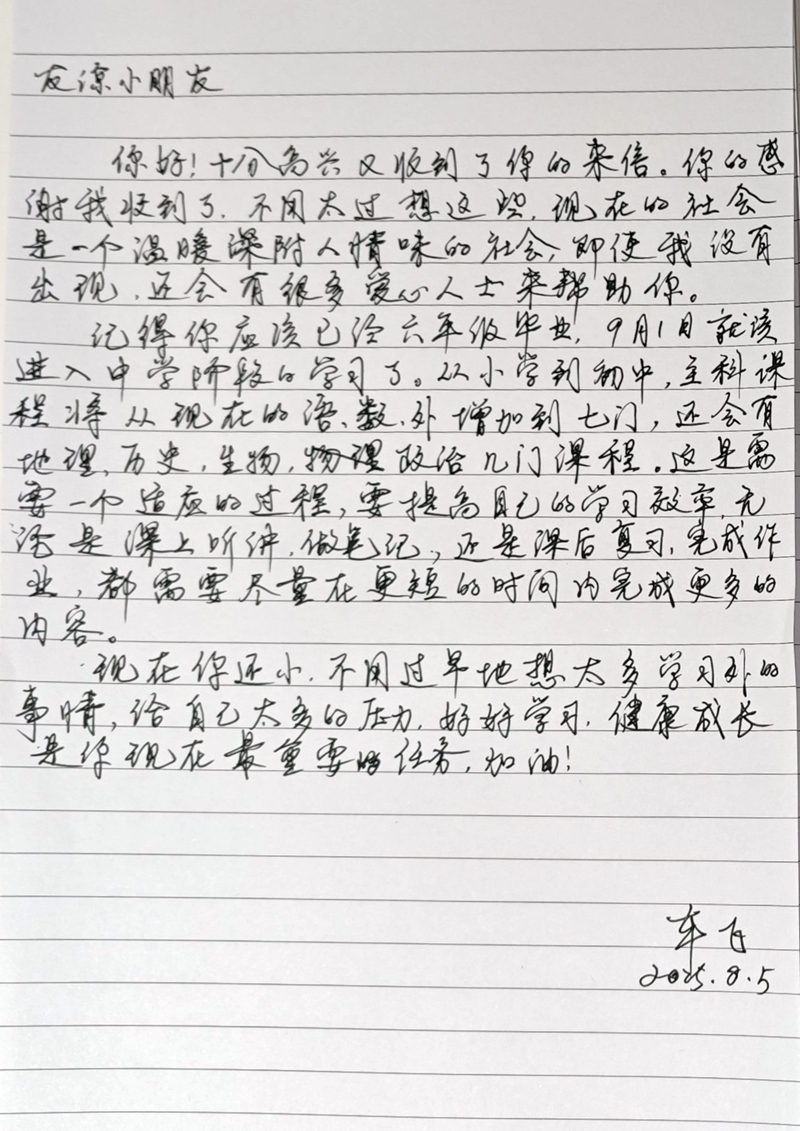 友谅小朋友
你好！十分高兴又收到了你的来信。你的感
谢我收到了，不用太过想这些，现在的社会
是一个温暖深附人情味的社会，即使我没有
出现，还会有很多爱心人士来帮助你。
记得你应该已经六年级毕业，9月1日就该
进入中学阶段的学习了。从小学到初中，主科课
程将从现在的语、数、外增加到七门，还会有
地理，历史，生物，物理政治几门课程。这是需
要一个适应的过程，要提高自己的学习效率，无
论是课上听讲，做笔记，还是课后复习，完成作
业，都需要尽量在更短的时间内完成更多的
内容。
现在你还小，不用过早地想太多学习外的
事情，给自己太多的压力，好好学习，健康成长
是你现在最重要的任务，加油！
2025.8.5